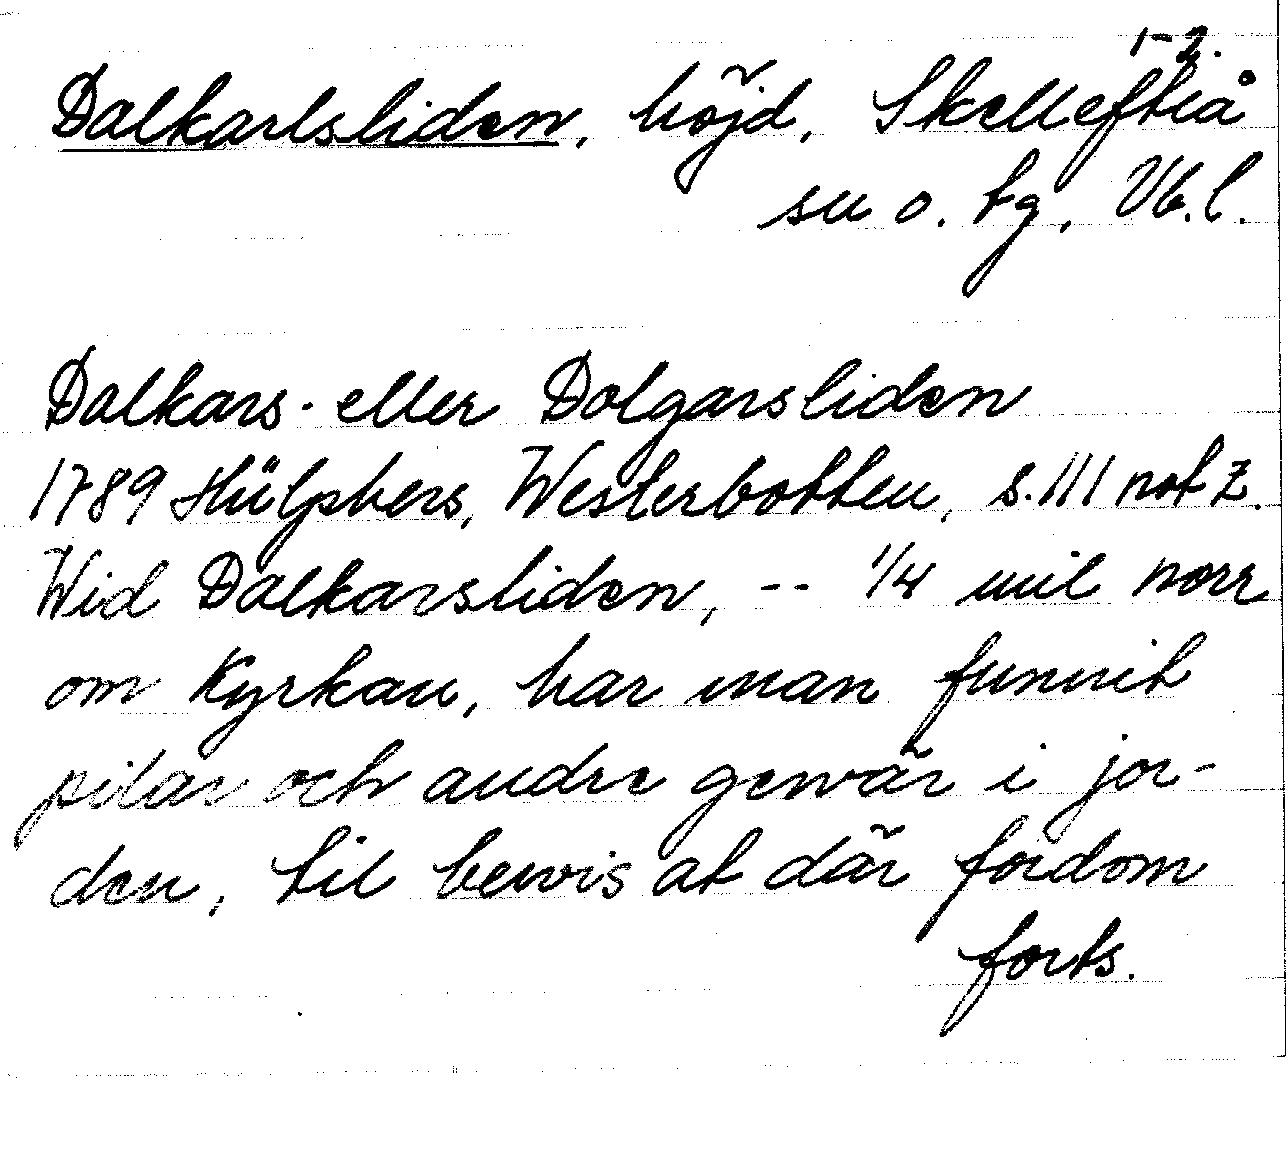 1-2.
Dalkarlsliden, höjd, Skellefteå
sn o. tg, Vb.l.
Dalkars- eller Dolgarsliden
1789 Hülphers, Westerbotten, s.111 not z.
Wid Dalkarsliden, -- 1/4 mil norr
om Kyrkan, har man funnit
pilar och andre gewär i jor-
den, til bewis at där fordom
forts.